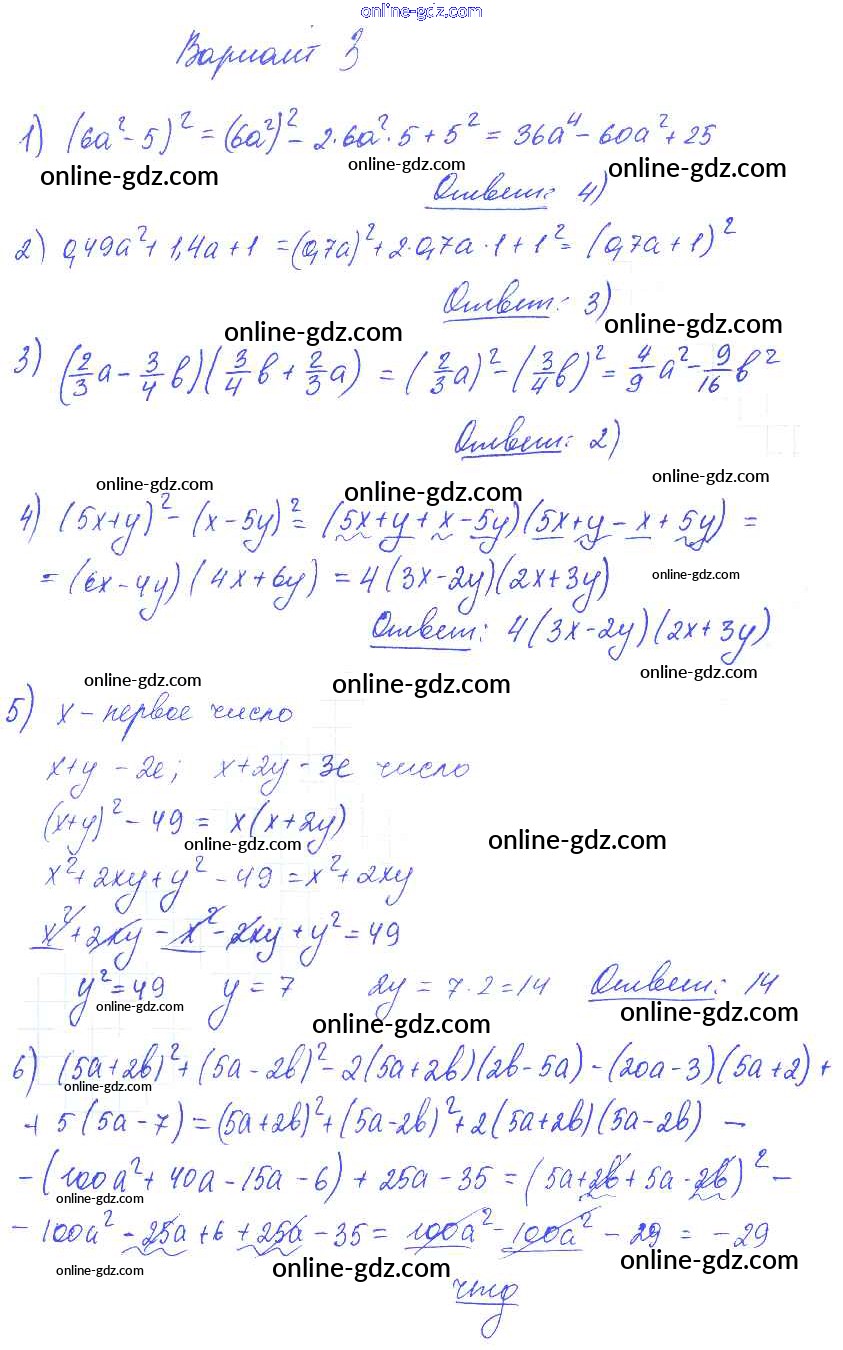 online-gdz.com
Вариант 3
1) (6a² - 5)² = (6a²)² - 2·6a²·5 + 5² = 36a⁴ - 60a² + 25
online-gdz.com online-gdz.com online-gdz.com
Ответ: 4)
2) 0,49a² + 1,4a + 1 = (0,7a)² + 2·0,7a·1 + 1² = (0,7a + 1)²
Ответ: 3)
online-gdz.com online-gdz.com
3) (2/3 a - 3/4 в)(3/4 в + 2/3 a) = (2/3 a)² - (3/4 в)² = 4/9 a² - 9/16 в²
Ответ: 2)
online-gdz.com online-gdz.com online-gdz.com
4) (5x+y)² - (x-5y)² = (5x+y+x-5y)(5x+y-x+5y) =
= (6x-4y)(4x+6y) = 4(3x-2y)(2x+3y)
online-gdz.com
Ответ: 4(3x-2y)(2x+3y)
online-gdz.com online-gdz.com online-gdz.com
5) x - первое число
x+y - 2е; x+2y - 3е число
(x+y)² - 49 = x(x+2y)
online-gdz.com online-gdz.com
x² + 2xy + y² - 49 = x² + 2xy
x² + 2xy - x² - 2xy + y² = 49
y² = 49 y = 7 2y = 7·2 = 14 Ответ: 14
online-gdz.com online-gdz.com online-gdz.com
6) (5a+2в)² + (5a-2в)² - 2(5a+2в)(2в-5a) - (20a-3)(5a+2) +
online-gdz.com
+ 5(5a-7) = (5a+2в)² + (5a-2в)² + 2(5a+2в)(5a-2в) -
- (100a² + 40a - 15a - 6) + 25a - 35 = (5a+2в+5a-2в)² -
online-gdz.com
- 100a² - 25a + 6 + 25a - 35 = 100a² - 100a² - 29 = -29
online-gdz.com online-gdz.com online-gdz.com
чтд